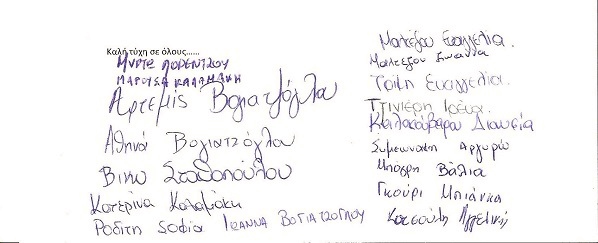 Καλή τύχη σε όλους......
ΜΥΡΤΩ ΛΟΡΕΝΤΖΟΥ
ΜΑΡΟΥΣΑ ΚΑΛΑΜΑΚΗ
Αρτεμις Βογιατζόγλου
Αθηνά Βογιατζόγλου
Βικυ Σταθοπούλου
Κατερίνα Καλαμάκη
Ροδίτη Sofia ΙΩΑΝΝΑ ΒΟΓΙΑΤΖΟΓΛΟΥ
Μαλτέζου Ευαγγελία.
Μαλτεζου Ιωαννα
Ευαγγελια.
Διονυσία
Συμεωνάκη Αργυρώ
Βάλια
Γκούρι Μπιάνκα
Αγγελική